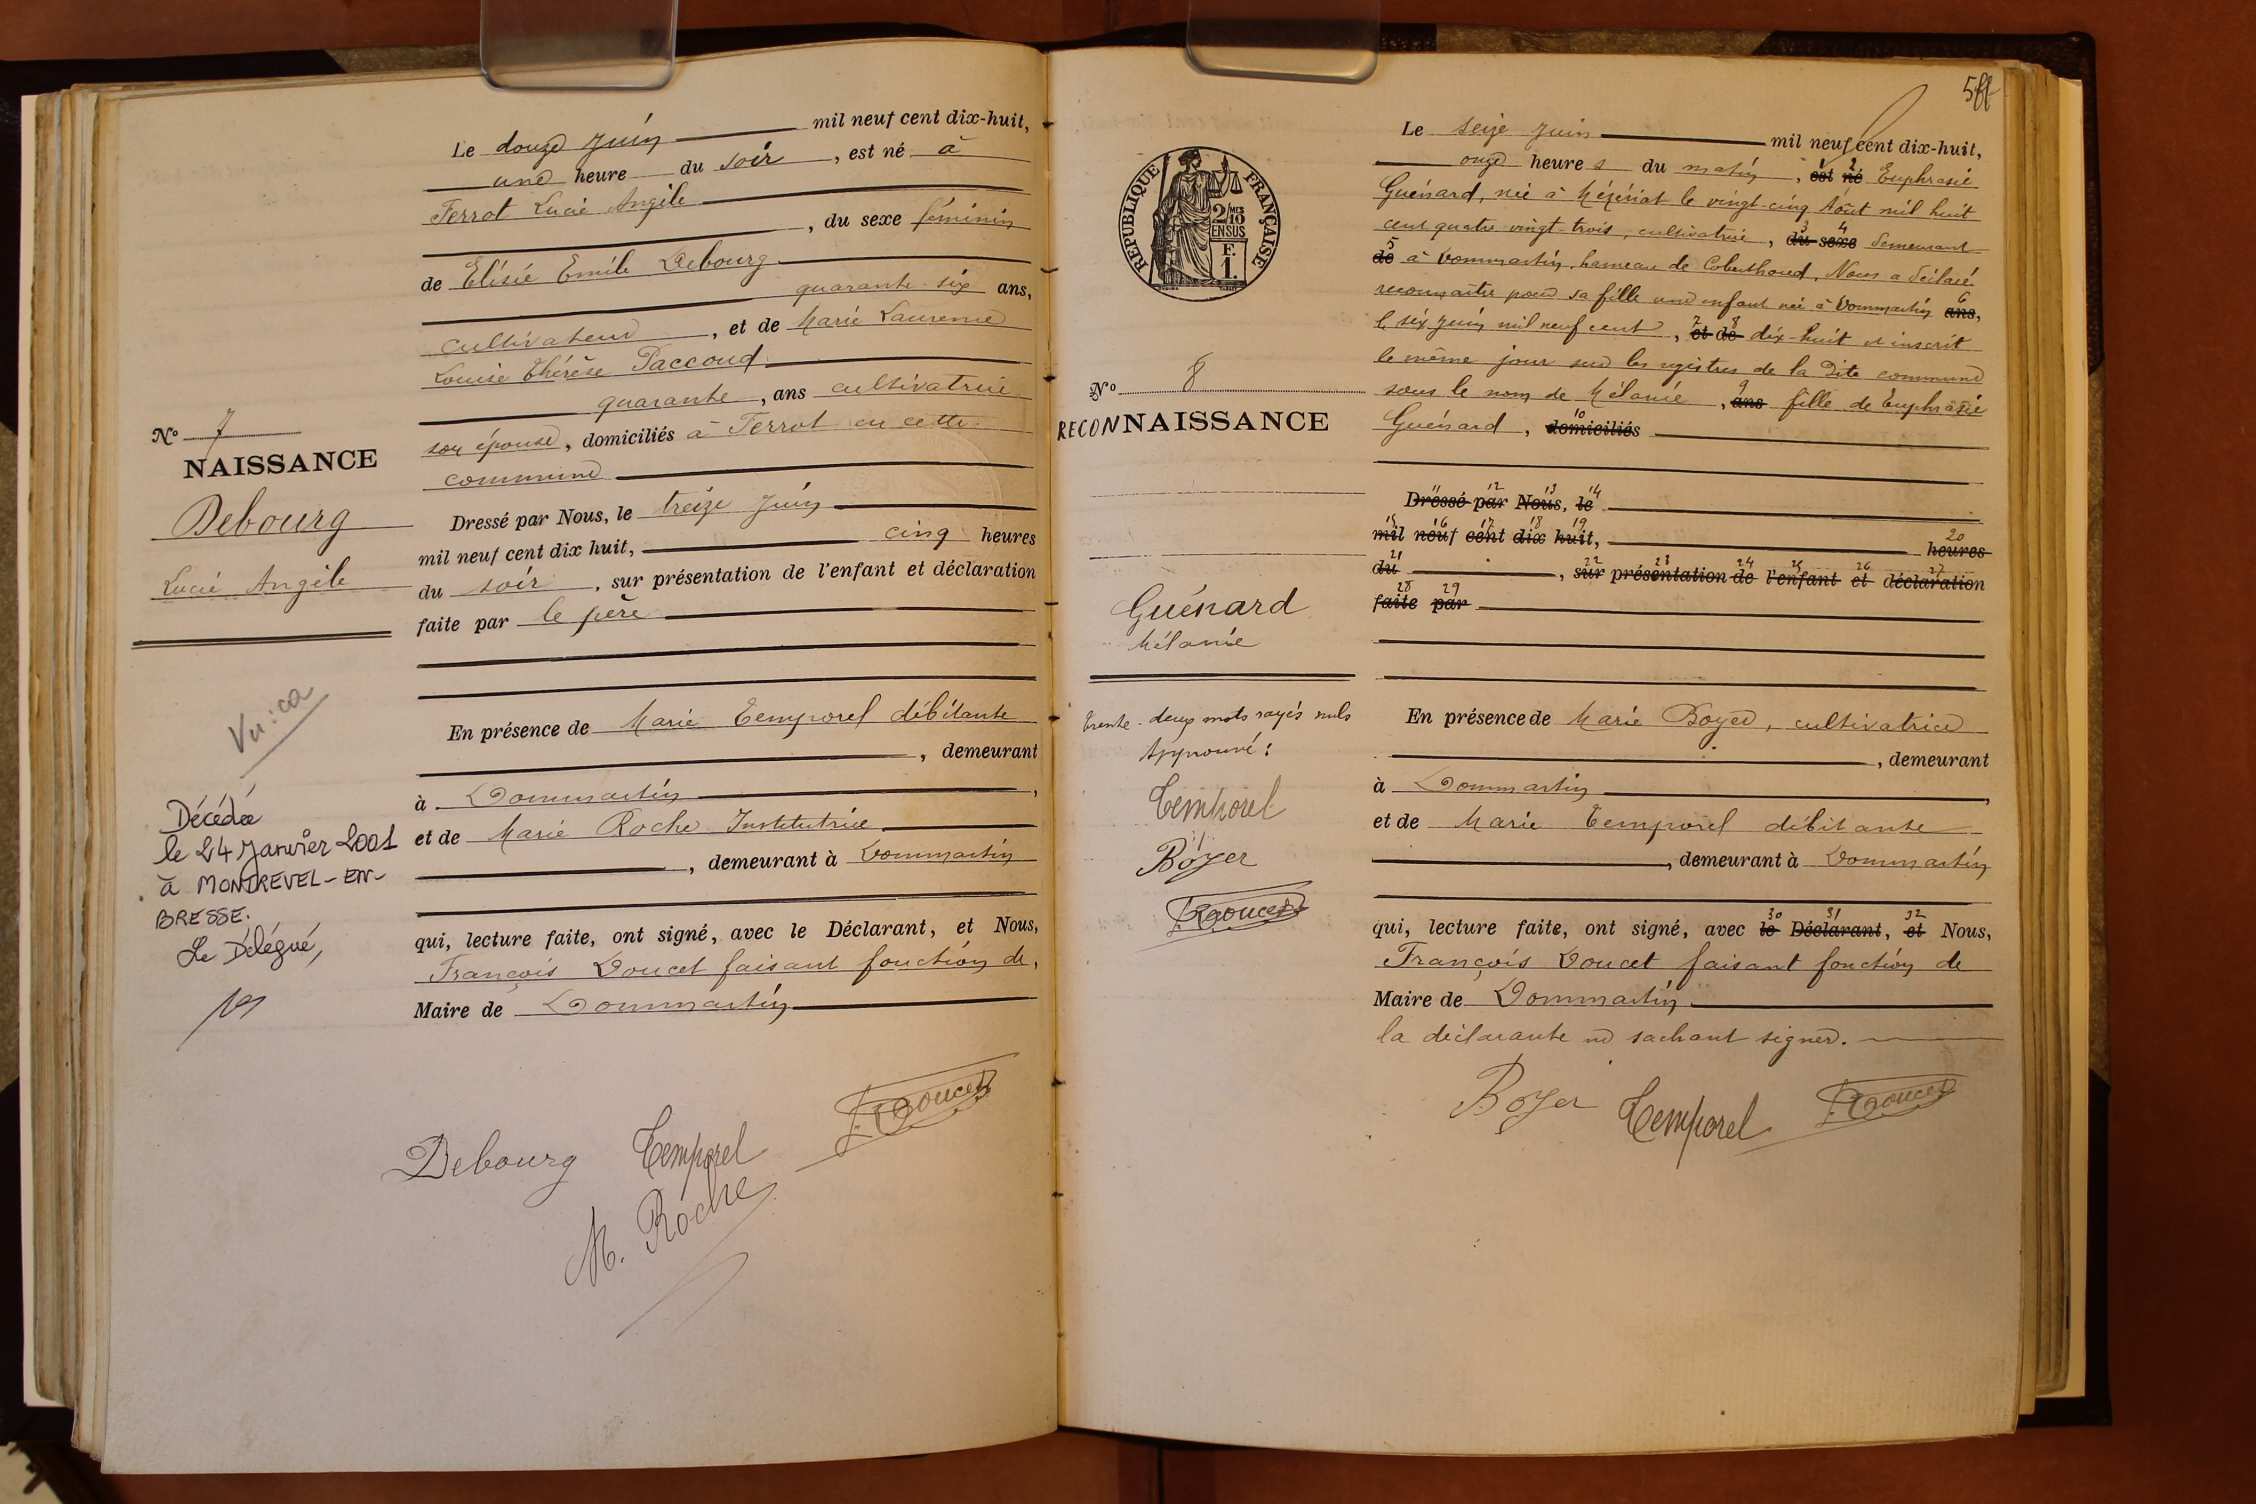 N° 7
NAISSANCE
Debourg
Lucie Angèle
Décédée
le 24 Janvier 2001
à MONTREVEL-EN-
BRESSE.
Le Délégué,
Le douze Juin mil neuf cent dix-huit,
une heure du soir, est né à
Ferrot Lucie Angèle
, du sexe féminin
de Elisée Emile Debourg
quarante-six ans,
cultivateur, et de Marie Laurence
Louise Thérèse Paccoud
quarante, ans cultivatrice
son épouse, domiciliés à Ferrot en cette
commune
Dressé par Nous, le treize Juin
mil neuf cent dix huit, cinq heures
du soir, sur présentation de l'enfant et déclaration
faite par le père
En présence de Marie Temporel débitante
, demeurant
à Dommartin,
et de Marie Roche Institutrice
, demeurant à Dommartin
qui, lecture faite, ont signé, avec le Déclarant, et Nous,
François Doucet faisant fonction de,
Maire de Dommartin
Debourg Temporel F. Doucet
M. Roche
REPUBLIQUE FRANÇAISE
2/10 MES
EN SUS
F.
1.
N° 8
RECONNAISSANCE
Guénard
Mélanie
Trente-deux mots rayés nuls
Approuvé :
Temporel
Boyer
F. Doucet
Le seize Juin mil neuf cent dix-huit,
onze heures du matin, 1 est 2 né Euphrasie
Guénard, née à Mézériat le vingt-cinq Août mil huit
cent quatre-vingt-trois, cultivatrice, 3 du 4 sexe demeurant
5 de à Dommartin, hameau de Coberthoud, Nous a déclaré
reconnaitre pour sa fille une enfant née à Dommartin 6 ans,
le six Juin mil neuf cent, 7 et 8 de dix-huit et inscrit
le même jour sur les registres de la dite commune
sous le nom de Mélanie, 9 ans fille de Euphrasie
Guénard, 10 domiciliés
11 Dressé 12 par 13 Nous, 14 le
15 mil 16 neuf 17 cent 18 dix 19 huit, 20 heures
21 du, 22 sur 23 présentation 24 de 25 l'enfant 26 et 27 déclaration
28 faite 29 par
En présence de Marie Boyer, cultivatrice
, demeurant
à Dommartin,
et de Marie Temporel débitante
, demeurant à Dommartin
qui, lecture faite, ont signé, avec 30 le 31 Déclarant, 32 et Nous,
François Doucet faisant fonction de
Maire de Dommartin
la déclarante ne sachant signer.
Boyer Temporel F. Doucet